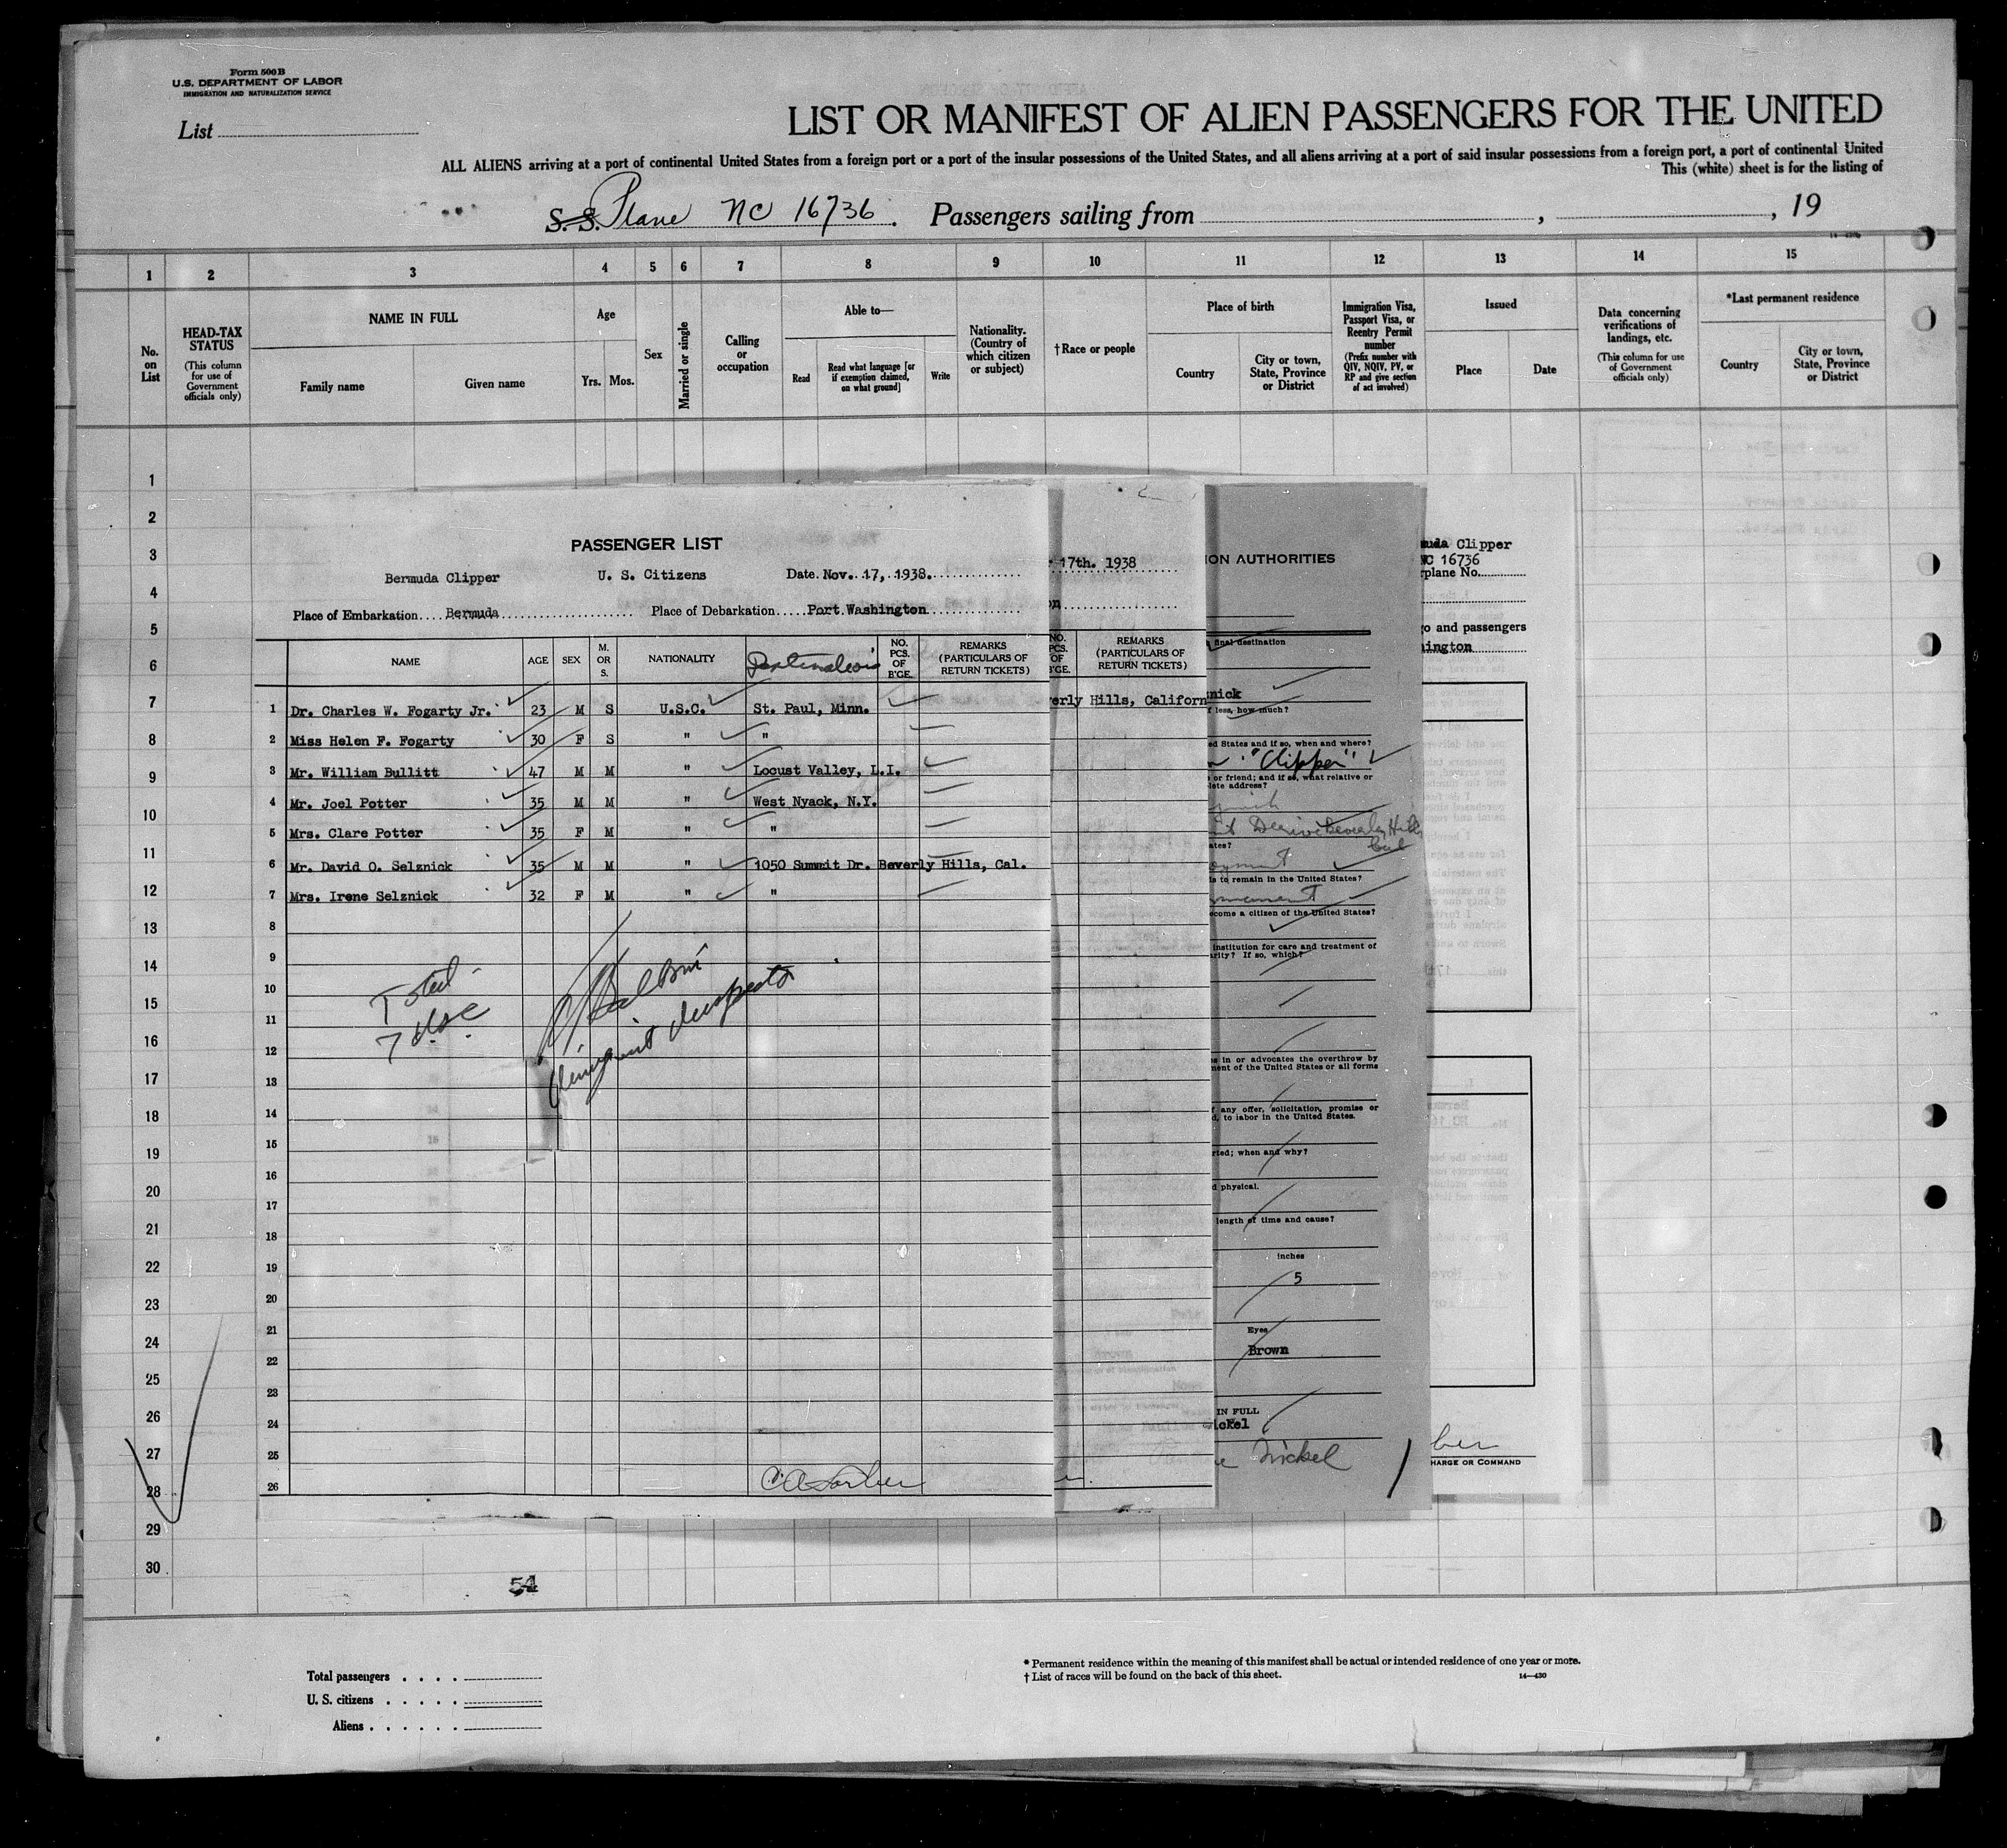 Form 500B
U.S. DEPARTMENT OF LABOR
IMMIGRATION AND NATURALIZATION SERVICE
List
LIST OR MANIFEST OF ALIEN PASSENGERS FOR THE UNITED
ALL ALIENS arriving at a port of continental United States from a foreign port or a port of the insular possessions of the United States, and all aliens arriving at a port of said insular possessions from a foreign port, a port of continental United
This (white) sheet is for the listing of
S.S. Plane NC 16736. Passengers sailing from , , 19
1 2 3 4 5 6 7 8 9 10 11 12 13 14 15
No. on List
HEAD-TAX STATUS
(This column for use of Government officials only)
NAME IN FULL
Family name Given name
Age
Yrs. Mos.
Sex
Married or single
Calling or occupation
Able to—
Read
Read what language [or if exemption claimed, on what ground]
Write
Nationality. (Country of which citizen or subject)
†Race or people
Place of birth
Country
City or town, State, Province or District
Immigration Visa, Passport Visa, or Reentry Permit number
(Prefix number with QIV, NQIV, PV, or RP and give section of act involved)
Issued
Place Date
Data concerning verifications of landings, etc.
(This column for use of Government officials only)
*Last permanent residence
Country
City or town, State, Province or District
1
2
3
4
5
6
7
8
9
10
11
12
13
14
15
16
17
18
19
20
21
22
23
24
25
26
27
28
29
30
PASSENGER LIST
Bermuda Clipper U. S. Citizens Date. Nov. 17, 1938.
Place of Embarkation Bermuda Place of Debarkation Port Washington
NAME AGE SEX M. OR S. NATIONALITY NO. PCS. OF B'GE. REMARKS (PARTICULARS OF RETURN TICKETS)
1 Dr. Charles W. Fogarty Jr. 23 M S U.S.C. St. Paul, Minn.
2 Miss Helen F. Fogarty 30 F S " "
3 Mr. William Bullitt 47 M M " Locust Valley, L.I.
4 Mr. Joel Potter 35 M M " West Nyack, N.Y.
5 Mrs. Clare Potter 35 F M " "
6 Mr. David O. Selznick 35 M M " 1050 Summit Dr. Beverly Hills, Cal.
7 Mrs. Irene Selznick 32 F M " "
8
9
10
11
12
13
14
15
16
17
18
19
20
21
22
23
24
25
26
Total
7 USC
Inspector
17th. 1938
on
NO. PCS. OF 'GE.
REMARKS (PARTICULARS OF RETURN TICKETS)
erly Hills, Californ
ION AUTHORITIES
final destination
nick
f less, how much?
ed States and if so, when and where?
"Clipper"
or friend; and if so, what relative or
lete address?
Drive Beverly Hills
Cal
ates?
oyment
to remain in the United States?
rmanent
ecome a citizen of the United States?
institution for care and treatment of
arity? If so, which?
s in or advocates the overthrow by
ment of the United States or all forms
f any offer, solicitation, promise or
d, to labor in the United States.
rted; when and why?
d physical.
length of time and cause?
inches
5
Eyes
Brown
IN FULL
ickel
e Nickel
muda Clipper
NC 16736
rplane No.
go and passengers
hington
ber
HARGE OR COMMAND
54
Total passengers
U. S. citizens
Aliens
* Permanent residence within the meaning of this manifest shall be actual or intended residence of one year or more.
† List of races will be found on the back of this sheet.
14—430